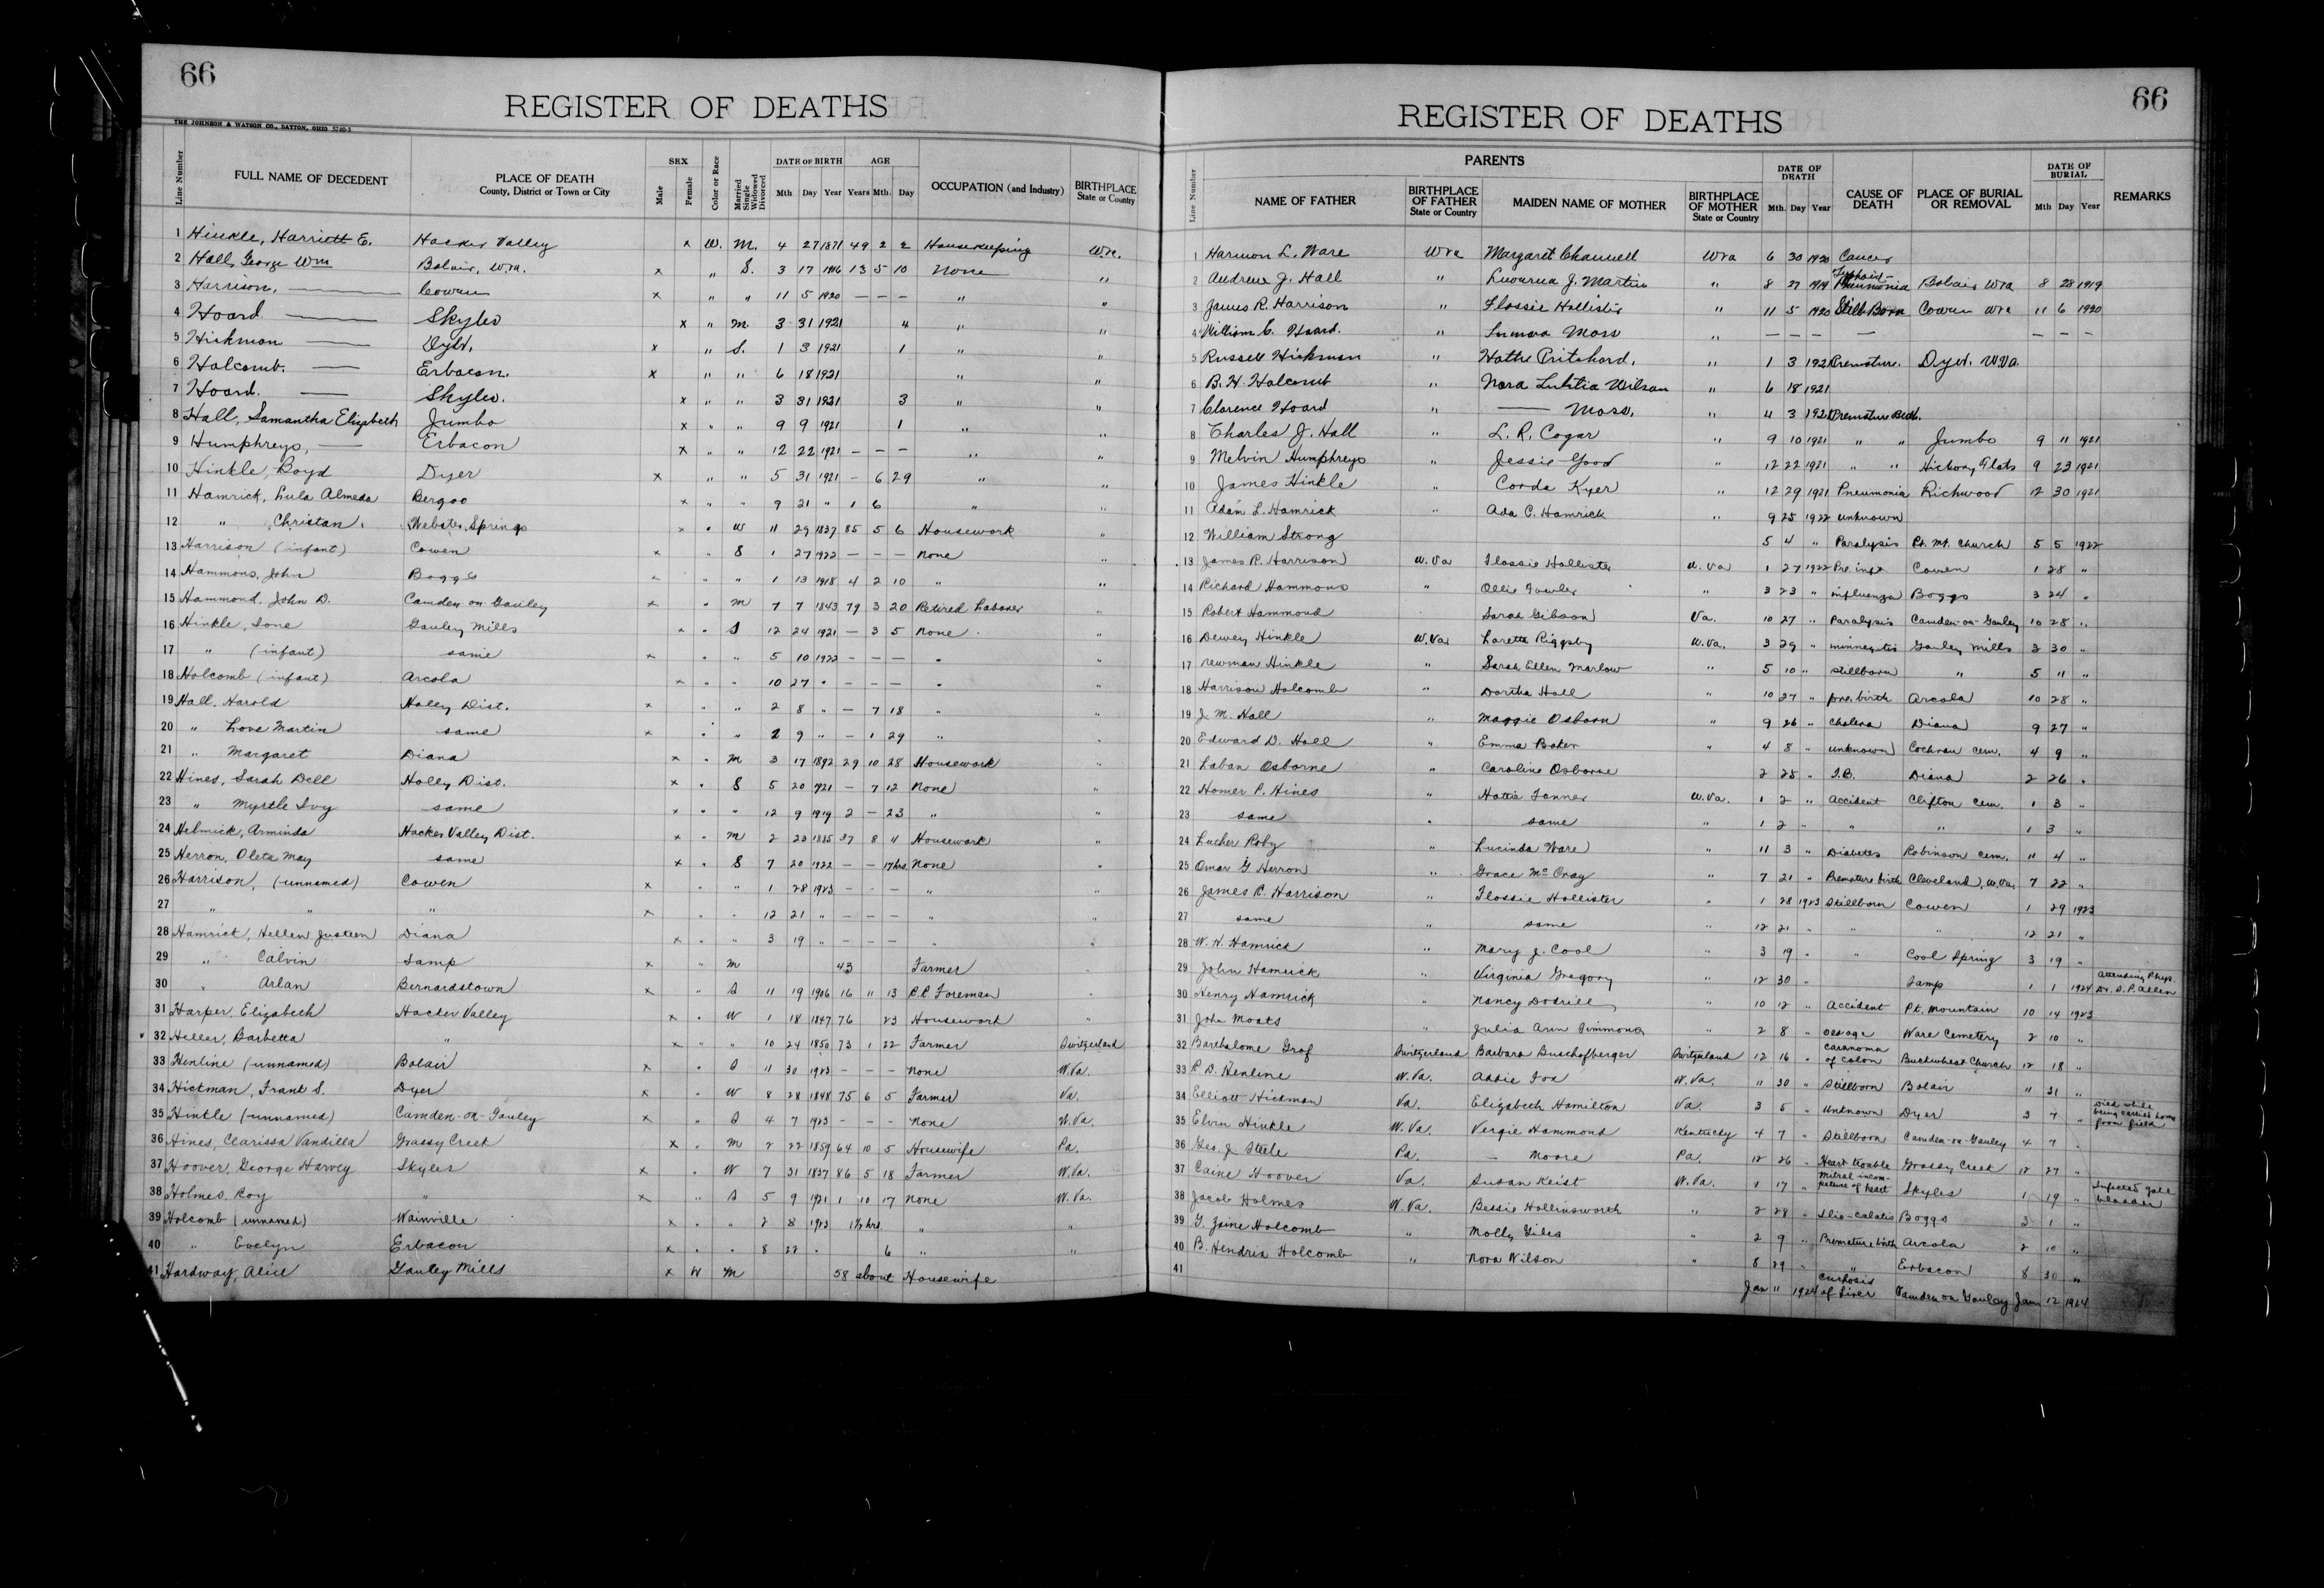 66
REGISTER OF DEATHS
THE JOHNSON & WATSON CO., DAYTON, OHIO
Line Number
FULL NAME OF DECEDENT
PLACE OF DEATH
County, District or Town or City
SEX
Male
Female
Color or Race
Married
Single
Widowed
Divorced
DATE OF BIRTH
Mth Day Year
AGE
Years Mth. Day
OCCUPATION (and Industry)
BIRTHPLACE
State or Country
1 Hinkle, Harriett E. Hacker Valley x W. M. 4 27 1871 49 2 2 Housekeeping W.va.
2 Hall, George Wm Bolair, W.va. x " S. 3 17 1906 13 5 10 None "
3 Harrison, — Cowen x " " 11 5 1920 — — — " "
4 Hoard. — Skyles x " M. 3 31 1921 4 " "
5 Hickman — Dyer. x " S. 1 3 1921 1 " "
6 Holcomb. — Erbacon. x " " 6 18 1921 " "
7 Hoard. — Skyles. x " " 3 31 1921 3 " "
8 Hall, Samantha Elizabeth Jumbo x " " 9 9 1921 1 " "
9 Humphreys, — Erbacon x " " 12 22 1921 — — — " "
10 Hinkle, Boyd Dyer x " " 5 31 1921 — 6 29 " "
11 Hamrick, Lula Almeda Bergoo x " " 9 21 " 1 6 "
12 " Christan, Webster Springs x " W 11 29 1837 85 5 6 Housework "
13 Harrison (infant) Cowen x " S 1 27 1922 — — — None "
14 Hammons, John Boggs x " " 1 13 1918 4 2 10 " "
15 Hammond, John D. Camden-on-Gauley x " M 7 7 1843 79 3 20 Retired Laborer "
16 Hinkle, Ione Gauley Mills x " S 12 24 1921 — 3 5 None "
17 " (infant) same x " " 5 10 1922 — — — " "
18 Holcomb (infant) Arcola x " " 10 27 " — — — " "
19 Hall, Harold Holly Dist. x " " 2 8 " — 7 18 " "
20 " Love Martin same x " " 2 9 " — 1 29 " "
21 " Margaret Diana x " M 3 17 1892 29 10 28 Housework "
22 Hines, Sarah Dell Holly Dist. x " S 5 20 1921 — 7 12 None "
23 " Myrtle Ivy same x " " 12 9 1919 2 — 23 " "
24 Helmick, Arminda Hacker Valley Dist. x " M 2 23 1885 37 8 11 Housework "
25 Herron, Oleta May same x " S 7 20 1922 — — 17hrs. None "
26 Harrison, (unnamed) Cowen x " " 1 28 1923 — — — " "
27 " " " x " " 12 21 " — — — " "
28 Hamrick, Hellen Justeen Diana x " " 3 19 " — — — " "
29 " Calvin Samp x " M 43 Farmer "
30 " Arlan Bernardstown x " S 11 19 1906 16 11 13 R.R. Foreman "
31 Harper, Elizabeth Hacker Valley x " W 1 18 1847 76 23 Housework "
32 Heller, Barbetta " x " " 10 24 1850 73 1 22 Farmer Switzerland
33 Henline (unnamed) Bolair x " S 11 30 1923 — — — None W.Va.
34 Hickman, Frank S. Dyer x " W 8 28 1848 75 6 5 Farmer Va.
35 Hinkle (unnamed) Camden-on-Gauley x " S 4 7 1923 — — — None W.Va.
36 Hines, Clarissa Vandilla Grassy Creek x " M 2 22 1859 64 10 5 Housewife Pa.
37 Hoover, George Harvey Skyles x " W 7 31 1837 86 5 18 Farmer W.Va.
38 Holmes, Roy " x " S 5 9 1921 1 10 17 None W.Va.
39 Holcomb (unnamed) Wainville x " " 2 8 1923 1½ hrs. " "
40 " Evelyn Erbacon x " " 8 22 " 6 " "
41 Hardway, Alice Gauley Mills x W M 58 about Housewife
66
REGISTER OF DEATHS
Line Number
PARENTS
NAME OF FATHER
BIRTHPLACE
OF FATHER
State or Country
MAIDEN NAME OF MOTHER
BIRTHPLACE
OF MOTHER
State or Country
DATE OF
DEATH
Mth. Day Year
CAUSE OF
DEATH
PLACE OF BURIAL
OR REMOVAL
DATE OF
BURIAL
Mth Day Year
REMARKS
1 Harmon L. Ware Wva Margaret Channell Wva 6 30 1920 Cancer
2 Andrew J. Hall " J. Martin " 8 27 1919 Typhoid-Pneumonia Bolair Wva 8 28 1919
3 James R. Harrison " Flossie Hollister " 11 5 1920 Still Born Cowen Wva 11 6 1920
4 William C. Hoard. " Moss " — — — — — — —
5 Russell Hickman " Hattie Pritchard. " 1 3 1921 Premature. Dyer. W.Va.
6 B. H. Holcomb " Nora Lutitia Wilson " 6 18 1921
7 Clarence Hoard " — Moss. " 4 3 1921 Premature Birth.
8 Charles J. Hall " L. R. Cogar " 9 10 1921 " " Jumbo 9 11 1921
9 Melvin Humphreys " Jessie Good " 12 22 1921 " " Hickory Flats 9 23 1921
10 James Hinkle " Corda Kyer " 12 29 1921 Pneumonia Richwood 12 30 1921
11 Adam L. Hamrick " Ada C. Hamrick " 9 25 1922 unknown
12 William Strong 5 4 " Paralysis Pt. Mt. Church 5 5 1922
13 James R. Harrison W.Va Flossie Hollister W.Va 1 27 1922 Pre. inft Cowen 1 28 "
14 Richard Hammons " Ollie Fowler " 3 23 " influenza Boggs 3 24 "
15 Robert Hammond Sarah Gibson Va. 10 27 " Paralysis Camden-on-Gauley 10 28 "
16 Dewey Hinkle W.Va. Loretta Riggsby W.Va. 3 29 " minnegitis Gauley Mills 3 30 "
17 Newman Hinkle " Sarah Ellen Marlow " 5 10 " stillborn " 5 11 "
18 Harrison Holcomb " Dortha Hall " 10 27 " pre. birth Arcola 10 28 "
19 J. M. Hall " Maggie Osborn " 9 26 " cholera Diana 9 27 "
20 Edward D. Hall " Emma Baker " 4 8 " unknown Cochran cem. 4 9 "
21 Laban Osborne " Caroline Osborne 2 25 " T.B. Diana 2 26 "
22 Homer P. Hines " Hattie Tanner W.Va. 1 2 " Accident Clifton cem. 1 3 "
23 same " same " 1 2 " " " 1 3 "
24 Luther Roby " Lucinda Ware " 11 3 " Diabetes Robinson cem. 11 4 "
25 Omar G Herron " Grace McCray " 7 21 " Premature birth Cleveland, W.Va. 7 22 "
26 James R. Harrison " Flossie Hollister " 1 28 1923 Stillborn Cowen 1 29 1923
27 same " same " 12 21 " " " 12 21 "
28 W. H. Hamrick " Mary J. Cool " 3 19 " " Cool Spring 3 19 "
29 John Hamrick " Virginia Gregory " 12 30 " Samp 1 1 1924 Attending Phys. Dr. S. P. Allen
30 Henry Hamrick " Nancy Dodrill " 10 12 " Accident Pt. Mountain 10 14 1923
31 John Moats " Julia Ann Simmons " 2 8 " Old age Ware Cemetery 2 10 "
32 Bartholome Graf Switzerland Barbara Buschofberger Switzerland 12 16 " caranoma of colon Buckwheat Church 12 18 "
33 R. D. Henline W.Va. Addie Fox W.Va. 11 30 " Stillborn Bolair 11 31 "
34 Elliott Hickman Va. Elizabeth Hamilton Va. 3 5 " Unknown Dyer 3 7 " Died while being carried home from field
35 Elvin Hinkle W.Va. Vergie Hammond Kentucky 4 7 " Stillborn Camden-on-Gauley 4 7 "
36 Geo. J. Steele Pa. — Moore Pa. 12 26 " Heart trouble Grassy Creek 12 27 "
37 Caine Hoover Va. Susan Keist W.Va. 1 17 " Mitral incompeture of heart Skyles 1 19 " Infected gall bladder
38 Jacob Holmes W.Va. Bessie Hollinsworth " 2 28 " Ilio-Calatis Boggs 3 1 "
39 G. Zaine Holcomb " Molly Giles " 2 9 " Premature birth Arcola 2 10 "
40 B. Hendrix Holcomb " Nora Wilson " 8 29 " " Erbacon 8 30 "
41 Jan 11 1924 Curhosis of Liver Camden on Gauley Jan 12 1924